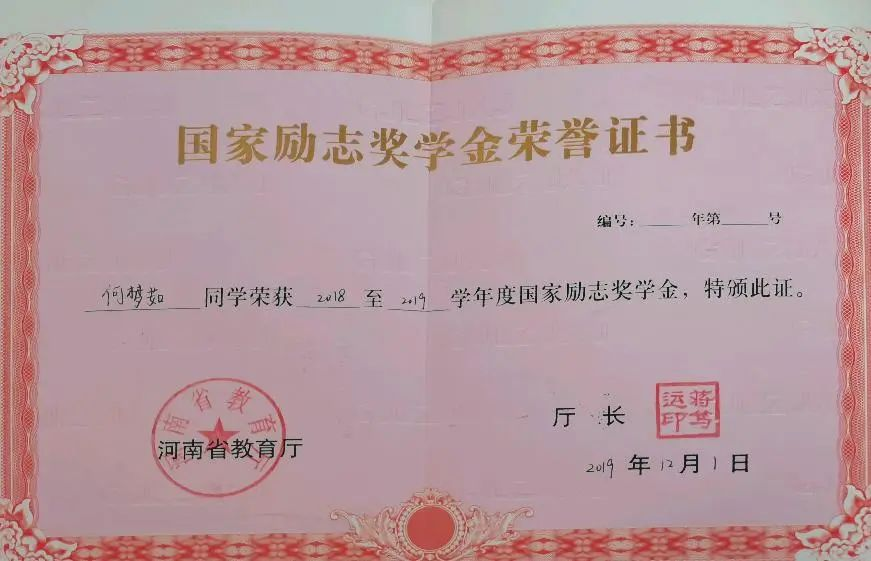 国家励志奖学金荣誉证书
编号：______年第______号
何梦茹 同学荣获 2018 至 2019 学年度国家励志奖学金，特颁此证。
河南省教育厅
河南省教育厅
厅 长
蒋笃远印
2019 年 12 月 1 日